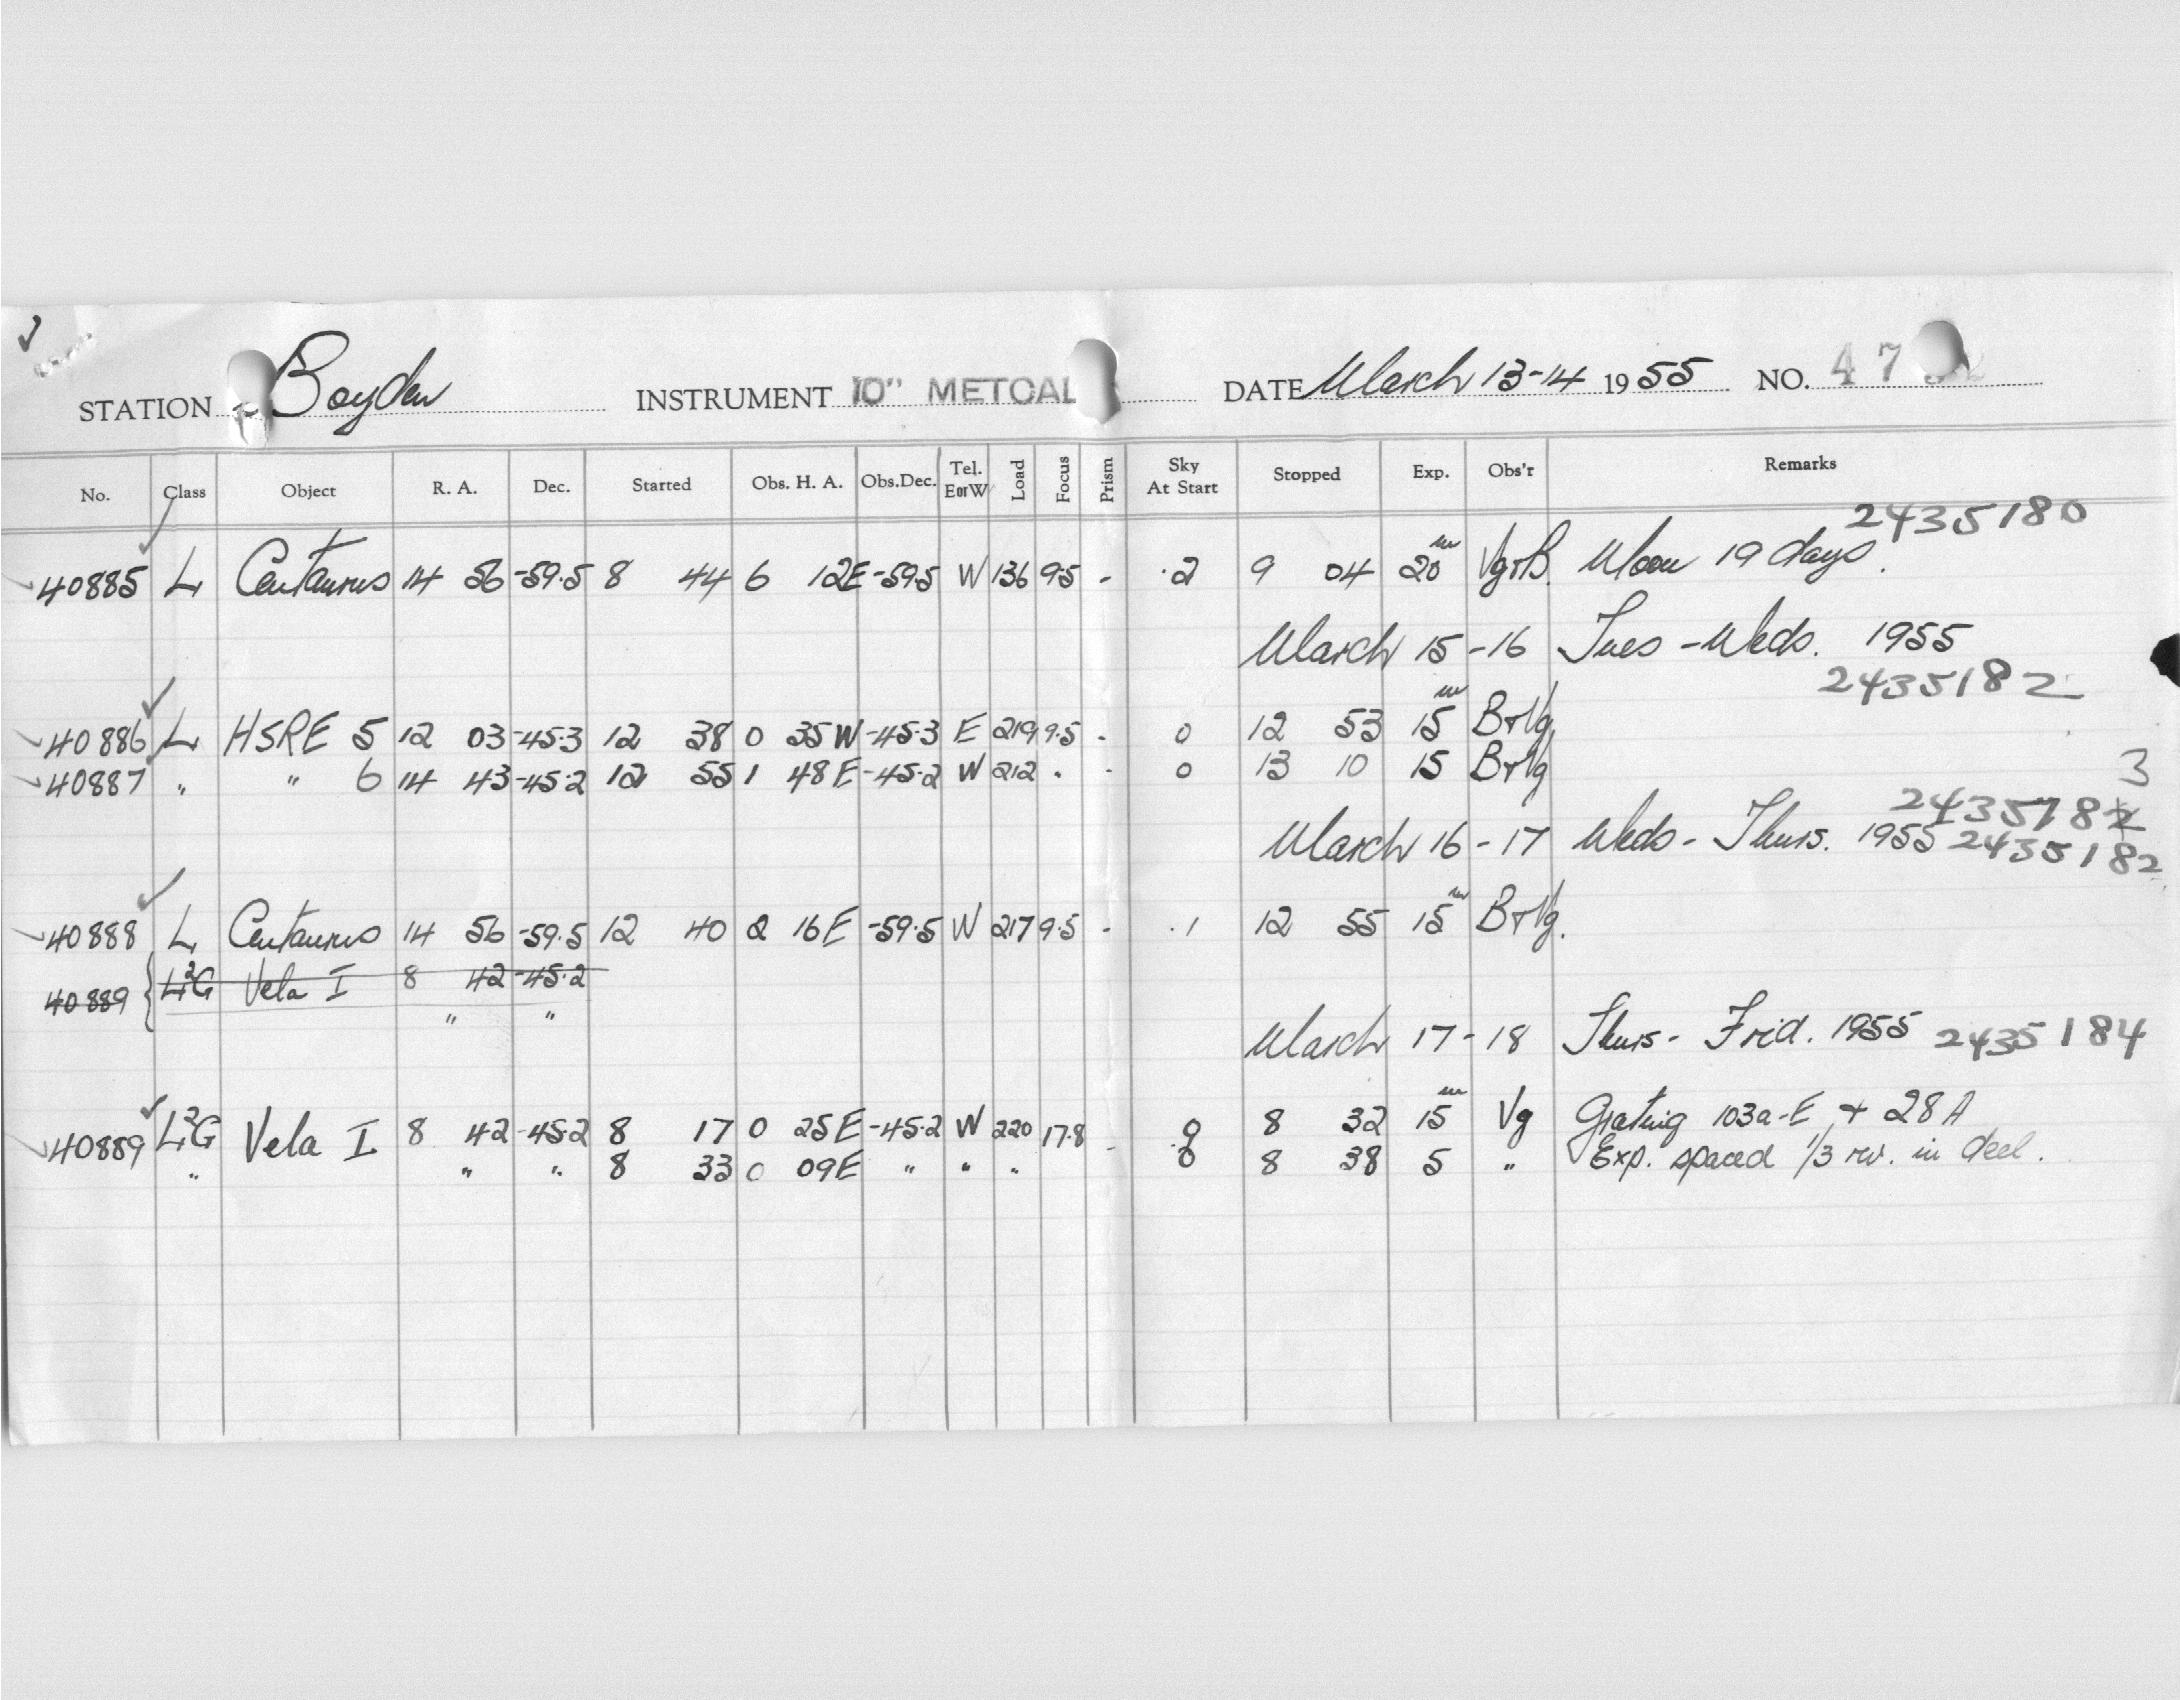 STATION Boyden INSTRUMENT 10" METCAL DATE March 13-14 1955 NO. 47
No. Class Object R. A. Dec. Started Obs. H. A. Obs.Dec. Tel. EorW Load Focus Prism Sky At Start Stopped Exp. Obs'r Remarks
2435180
40885 L Centaurus 14 56 -59.5 8 44 6 12E -59.5 W 136 9.5 - .2 9 04 20m Vg+B. Moon 19 days.
March 15-16 Tues - Weds. 1955
2435182
40886 L HSRE 5 12 03 -45.3 12 38 0 35W -45.3 E 219 9.5 - 0 12 53 15m B+Vg
40887 " " 6 14 43 -45.2 12 55 1 48E -45.2 W 212 " - 0 13 10 15 B+Vg
3
2435182
March 16-17 Weds - Thurs. 1955 2435182
40888 L Centaurus 14 56 -59.5 12 40 2 16E -59.5 W 217 9.5 - .1 12 55 15m B+Vg.
40889 L2G Vela I 8 42 -45.2
" "
March 17-18 Thurs - Frid. 1955 2435184
40889 L2G Vela I 8 42 -45.2 8 17 0 25E -45.2 W 220 17.8 - 8 32 15m Vg Grating 103a-E + 28A
" " " 8 33 0 09E " " " 8 38 5 " Exp. spaced 1/3 rev. in decl.